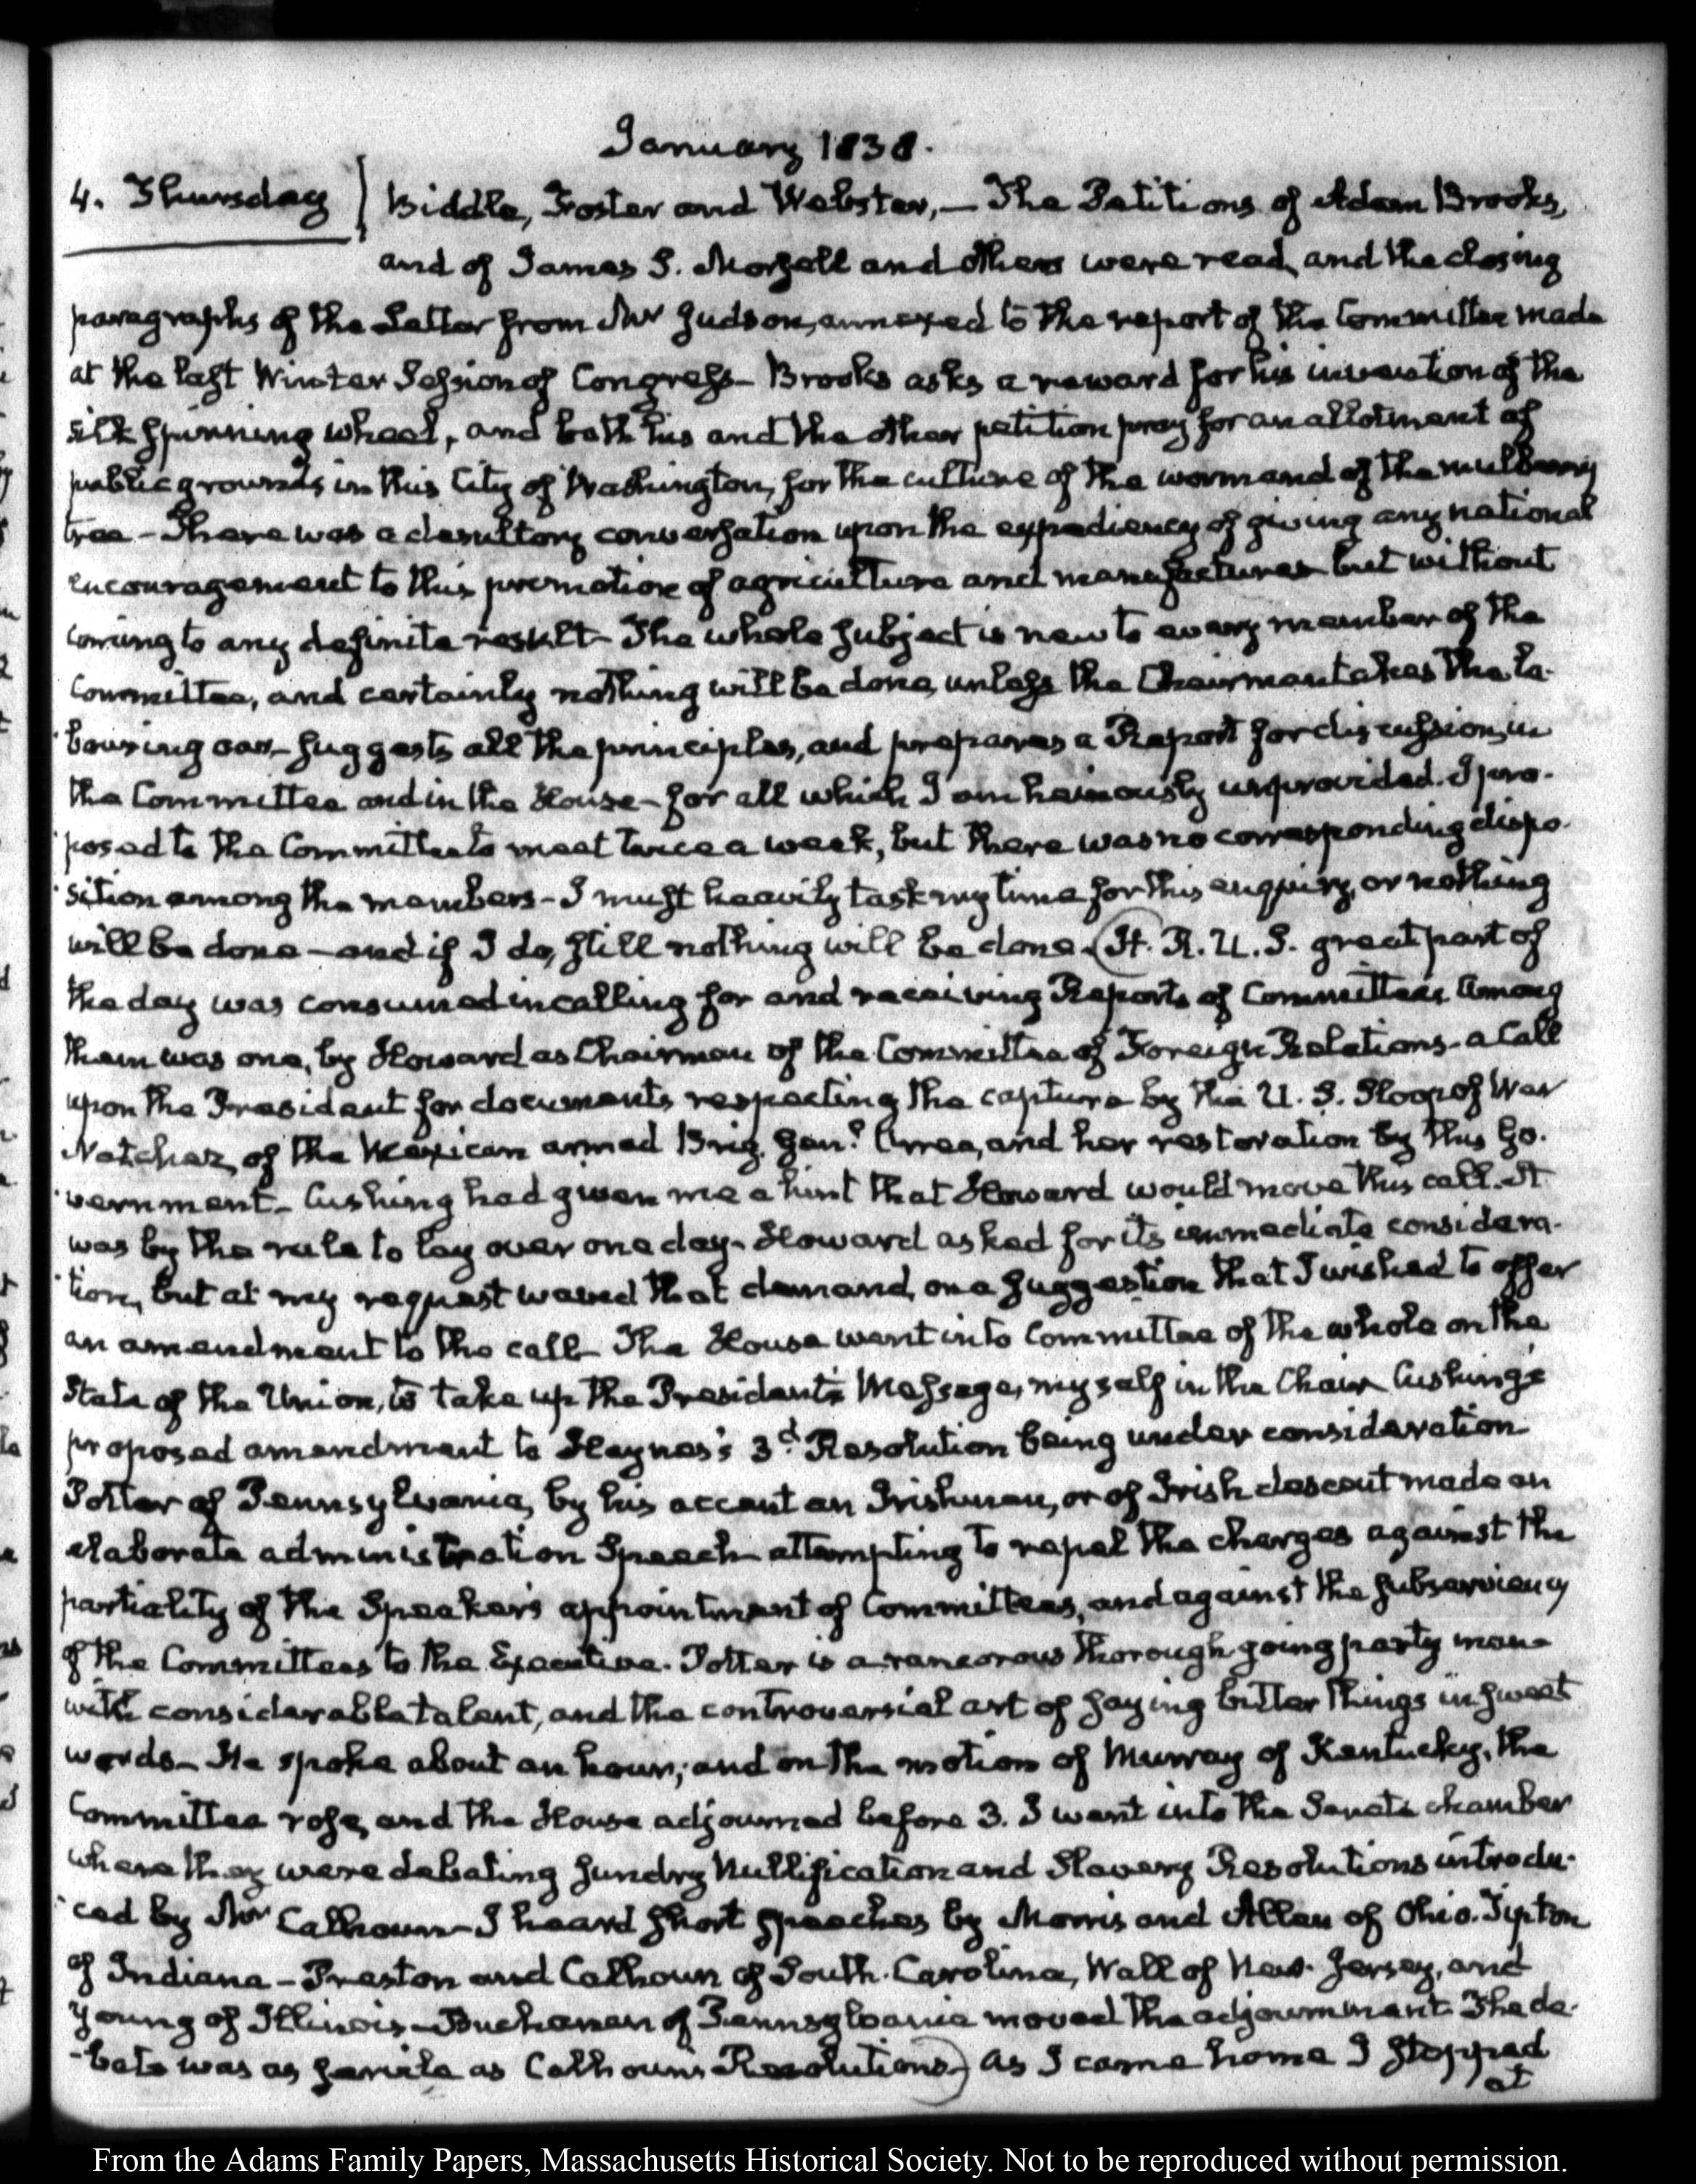 January 1838.
4. Thursday } Biddle, Foster and Webster,— The Petitions of Adam Brooks,
and of James S. and others were read, and the closing
paragraphs of the Letter from Mr Judson, annexed to the report of the Committee made
at the last Winter Session of Congress— Brooks asks a reward for his invention of the
silk spinning wheel, and both his and the other petition pray for an allotment of
public grounds in this City of Washington, for the culture of the worm and of the mulberry
tree— There was a desultory conversation upon the expediency of giving any national
encouragement to this promotion of agriculture and manufactures but without
coming to any definite result— The whole subject is new to every member of the
Committee, and certainly nothing will be done, unless the Chairman takes the la-
-bouring oar— suggests all the principles, and prepares a Report for discussion, in
the Committee and in the House— for all which I am heinously unprovided. I pro-
-posed to the Committee to meet twice a week, but there was no corresponding dispo-
-sition among the members— I must heavily task my time for this enquiry, or nothing
will be done— and if I do, still nothing will be done. (H. R. U. S. great part of
the day was consumed in calling for and receiving Reports of Committees. Among
them was one, by Howard as Chairman of the Committee of Foreign Relations— a Call
upon the President for documents respecting the capture by the U. S. Sloop of War
Natchez, of the Mexican armed Brig, Genl Urrea, and her restoration by this Go-
-vernment— Cushing had given me a hint that Howard would move this call. It
was by the rule to lay over one day— Howard asked for its immediate considera-
-tion, but at my request waved that demand, on a suggestion that I wished to offer
an amendment to the call— The House went into Committee of the whole on the
State of the Union, to take up the President's Message, myself in the Chair Cushing's
proposed amendment to Haynes's 3d Resolution being under consideration—
Potter of Pennsylvania, by his accent an Irishman, or of Irish descent made an
elaborate administration Speech— attempting to repel the charges against the
partiality of the Speaker's appointment of Committees, and against the subserviency
of the Committees to the Executive. Potter is a rancorous thorough going party man—
with considerable talent, and the controversial art of saying bitter things in sweet
words— He spoke about an hour; and on the motion of Murray of Kentucky, the
Committee rose, and the House adjourned before 3. I went into the Senate chamber
where they were debating sundry Nullification and Slavery Resolutions introdu-
-ced by Mr Calhoun— I heard short speeches by Morris and Allen of Ohio. Tipton
of Indiana— Preston and Calhoun of South-Carolina, Wall of New-Jersey, and
Young of Illinois— Buchanan of Pennsylvania moved the adjournment. The de-
-bate was as servile as Calhoun's Resolutions—) As I came home I stopped
at
From the Adams Family Papers, Massachusetts Historical Society. Not to be reproduced without permission.